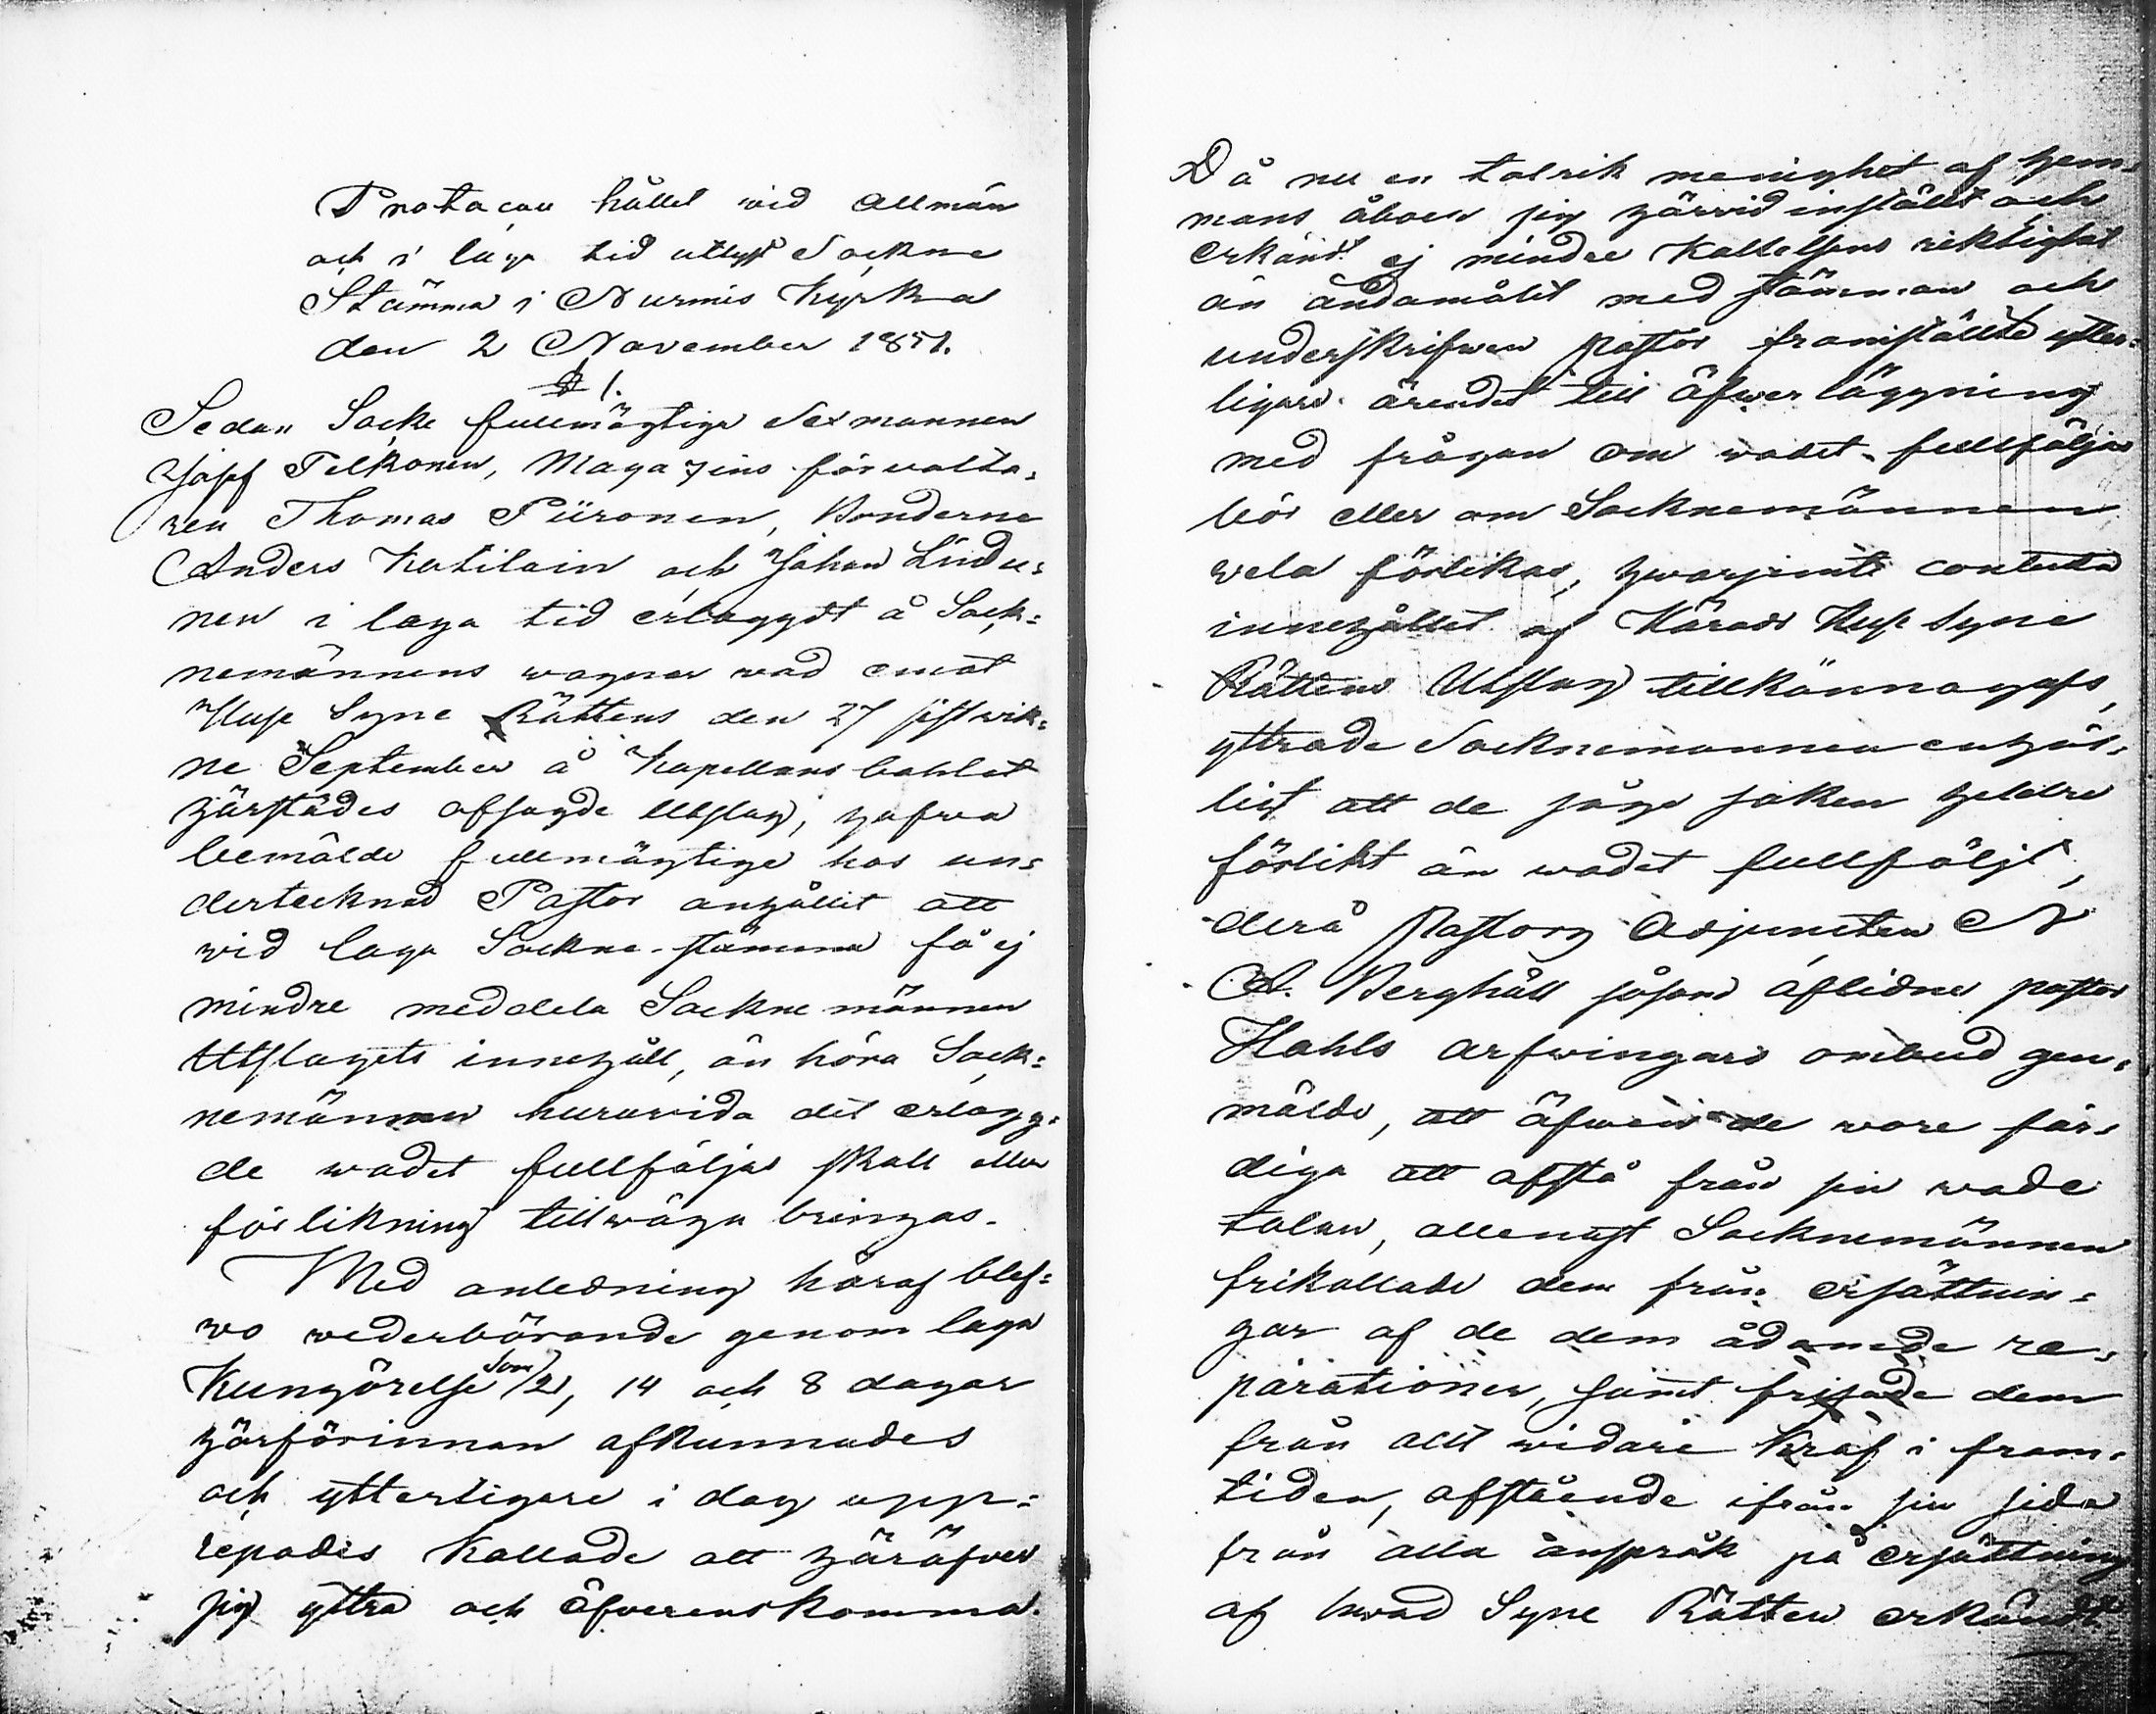 Protocoll hållet wid allmän
och i laga tid utlyst Sockne
Stämma i Nurmis Kyrka
den 2 November 1851.
§ 1.
Sedan Socke fullmägtige Sexmannen
Josef Pelkonen, Magazins förvalta=
ren Thomas Piironen, Bonderne
Anders Katilain och Johan Lindu=
nen i laga tid erlaggdt å Sock=
nemännens wagnar wad emot
Huse Syne Rättens den 27 sistwik=
ne September å Kapellans bohlet
härstädes afsagde Utslag, hafwa
bemälde fullmägtige hos un=
dertecknad Pastor anhållit att
wid laga Sockne-stämma få ej
mindre meddela Sockne männen
Utslagets innehåll, än höra Sock=
nemännen huruwida det erlagg=
de wadet fullföljas skall eller
förlikning tillwäga bringas.
Med anledning häraf blef=
wo wederbörande genom laga
Kungörelse som 21, 14 och 8 dagar
härförinnan afkunnades
och ytterligare i dag upp=
repades kallade att häröfver
sig yttra och öfverenskomma.
Då nu en talrik menighet af hem=
mans åboer sig härvid inställt och
erkändt ej mindre Kallelsens riktighet
än ändamålet med stämman och
underskrifwen Pastor framställde ytter=
ligare ärendet till öfwerläggning
med frågan om wadet fullföljas
bör eller om Socknemännen
wela förlikas, hwarjemte
innehållet af Härads Huse Syne
Rättens Utslag tillkännagafs,
yttrade Socknemännen enhäl=
ligt att de såge saken heldre
förlikt än wadet fullföljt,
derå Pastors Adjuncten N
A. Berghäll såsom aflidne pastor
Hahls arfwingars ombud gen=
mälde, att äfwen de wore fär=
diga att afstå från sin wade
talan, allenast Socknemännen
frikallade dem från ersättnin=
gar af de dem ådömde re=
parationer, samt frisade dem
från allt widare kraf i fram=
tiden, afstående ifrån sin sida
från alla anspråk på ersättning
af hwad Syne Rätten erkändt